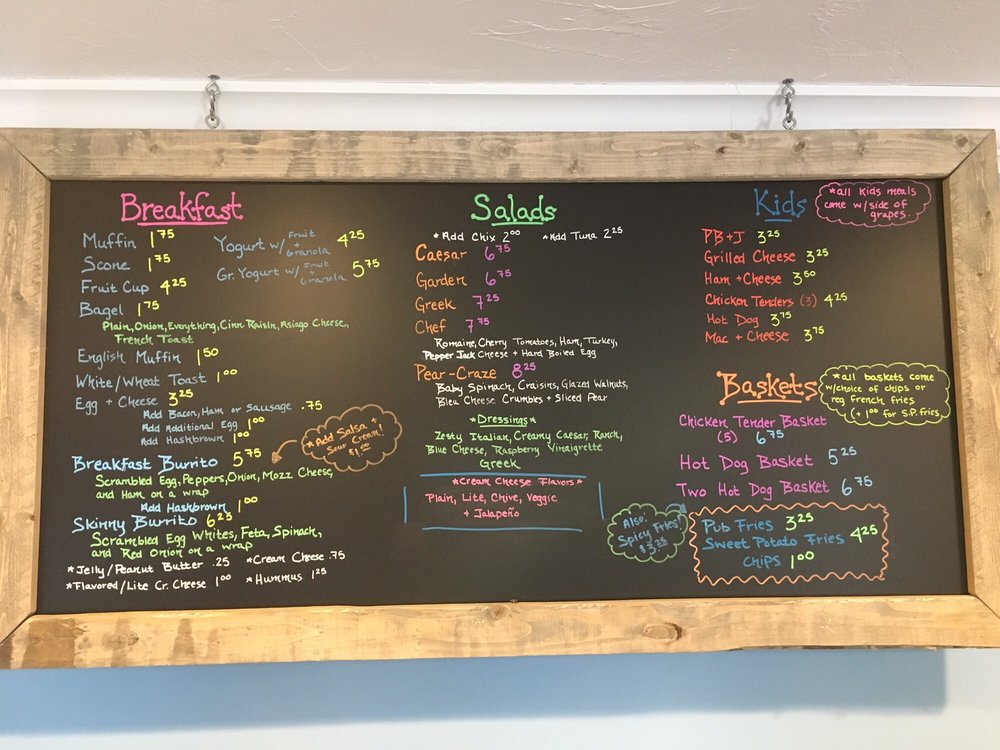 Breakfast
Muffin 1 75
Scone 1 75
Fruit Cup 4 25
Bagel 1 75
Plain, Onion, Everything, Cinn Raisin, Asiago Cheese,
French Toast
Yogurt w/ Fruit + Granola 4 25
Gr. Yogurt w/ Fruit + Granola 5 75
English Muffin 1 50
White/Wheat Toast 1 00
Egg + Cheese 3 25
Add Bacon, Ham or Sausage .75
Add Additional Egg 1 00
Add Hashbrown 1 00
*Add Salsa +
Sour Cream!
$1.00
Breakfast Burrito 5 75
Scrambled Egg, Peppers, Onion, Mozz Cheese,
and Ham on a wrap
Add Hashbrown 1 00
Skinny Burrito 6 25
Scrambled Egg Whites, Feta, Spinach,
and Red Onion on a wrap
*Jelly/Peanut Butter .25 *Cream Cheese .75
*Flavored/Lite Cr. Cheese 1 00 *Hummus 1 25
Salads
*Add Chix 2 00 *Add Tuna 2 25
Caesar 6 75
Garden 6 75
Greek 7 25
Chef 7 75
Romaine, Cherry Tomatoes, Ham, Turkey,
Pepper Jack Cheese + Hard Boiled Egg
Pear-Craze 8 25
Baby Spinach, Craisins, Glazed Walnuts,
Bleu Cheese Crumbles + Sliced Pear
*Dressings*
Zesty Italian, Creamy Caesar, Ranch,
Blue Cheese, Raspberry Vinaigrette
Greek
*Cream Cheese Flavors*
Plain, Lite, Chive, Veggie
+ Jalapeño
Kids
*all Kids meals
come w/ side of
grapes.
PB+J 3 25
Grilled Cheese 3 25
Ham + Cheese 3 50
Chicken Tenders (3) 4 25
Hot Dog 3 75
Mac + Cheese 3 75
Baskets
*all baskets come
w/choice of chips or
reg French fries
(+ 1 00 for S.P. fries
Chicken Tender Basket
(5) 6 75
Hot Dog Basket 5 25
Two Hot Dog Basket 6 75
Also:
Spicy Fries!
$3.25
Pub Fries 3 25
Sweet Potato Fries 4 25
Chips 1 00